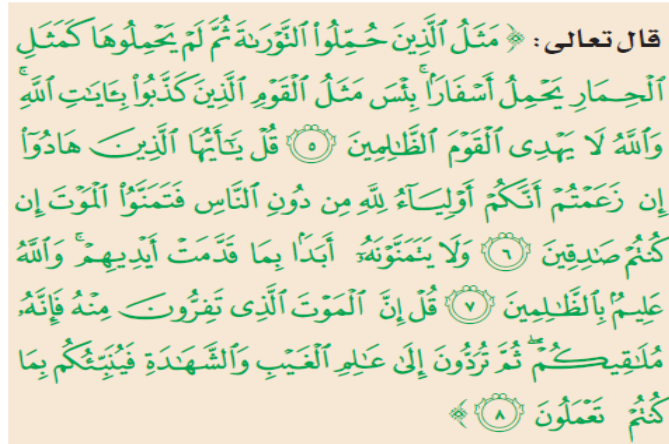 قال تعالى: ﴿ مَثَلُ ٱلَّذِينَ حُمِّلُوا۟ ٱلتَّوْرَىٰةَ ثُمَّ لَمْ يَحْمِلُوهَا كَمَثَلِ
ٱلْحِمَارِ يَحْمِلُ أَسْفَارًۢا ۚ بِئْسَ مَثَلُ ٱلْقَوْمِ ٱلَّذِينَ كَذَّبُوا۟ بِـَٔايَـٰتِ ٱللَّهِ ۚ
وَٱللَّهُ لَا يَهْدِى ٱلْقَوْمَ ٱلظَّـٰلِمِينَ ٥ قُلْ يَـٰٓأَيُّهَا ٱلَّذِينَ هَادُوٓا۟
إِن زَعَمْتُمْ أَنَّكُمْ أَوْلِيَآءُ لِلَّهِ مِن دُونِ ٱلنَّاسِ فَتَمَنَّوُا۟ ٱلْمَوْتَ إِن
كُنتُمْ صَـٰدِقِينَ ٦ وَلَا يَتَمَنَّوْنَهُۥٓ أَبَدًۢا بِمَا قَدَّمَتْ أَيْدِيهِمْ ۚ وَٱللَّهُ
عَلِيمٌۢ بِٱلظَّـٰلِمِينَ ٧ قُلْ إِنَّ ٱلْمَوْتَ ٱلَّذِى تَفِرُّونَ مِنْهُ فَإِنَّهُۥ
مُلَـٰقِيكُمْ ۖ ثُمَّ تُرَدُّونَ إِلَىٰ عَـٰلِمِ ٱلْغَيْبِ وَٱلشَّهَـٰدَةِ فَيُنَبِّئُكُم بِمَا
كُنتُمْ تَعْمَلُونَ ٨ ﴾